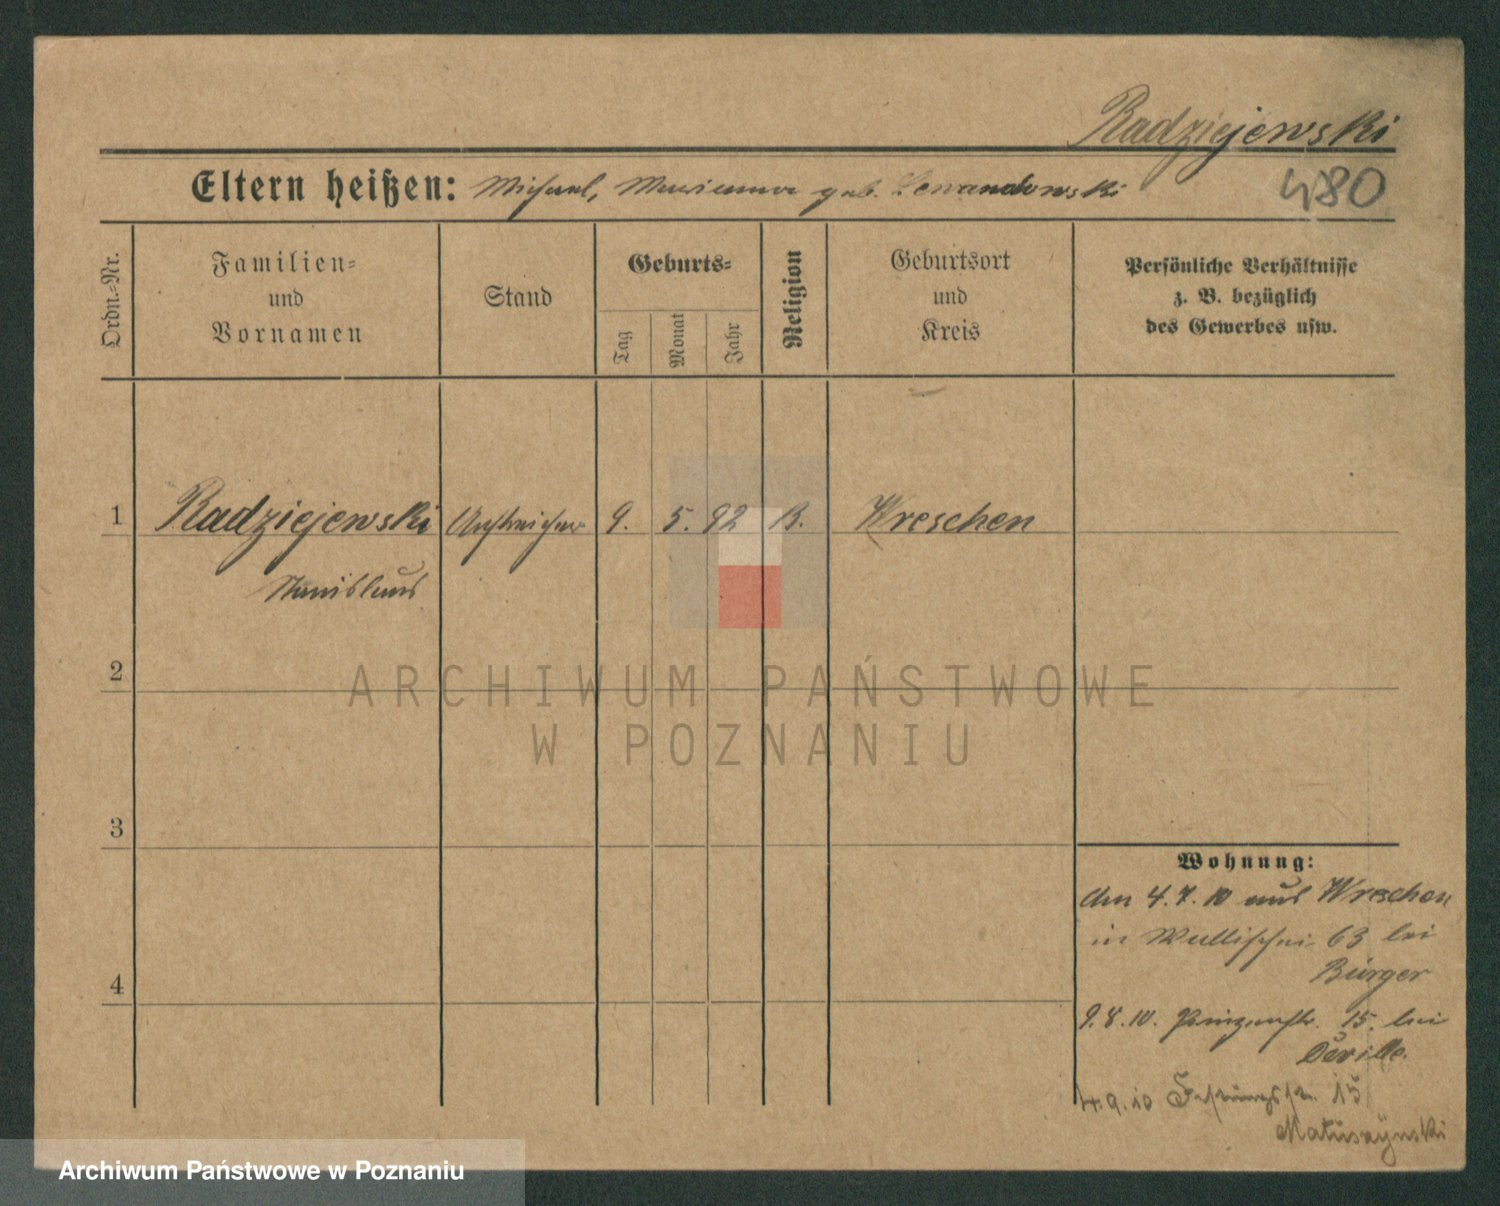 Radziejewski
Eltern heißen: Michael, Marianna geb. Lewandowski
480
Ordn.-Nr.
Familien-
und
Vornamen
Stand
Geburts-
Tag
Monat
Jahr
Religion
Geburtsort
und
Kreis
Persönliche Verhältnisse
z. B. bezüglich
des Gewerbes usw.
1 Radziejewski Anstreicher 9. 5. 92 Wreschen
Stanislaus
2
ARCHIWUM PAŃSTWOWE
W POZNANIU
3
Wohnung:
Am 4.7.10 aus Wreschen
in Wallischei 63 bei
Bürger
4
9.8.10. Prinzenstr. 15. bei
Deville.
4.9.10 Festungsstr. 15
Matuszynski
Archiwum Państwowe w Poznaniu